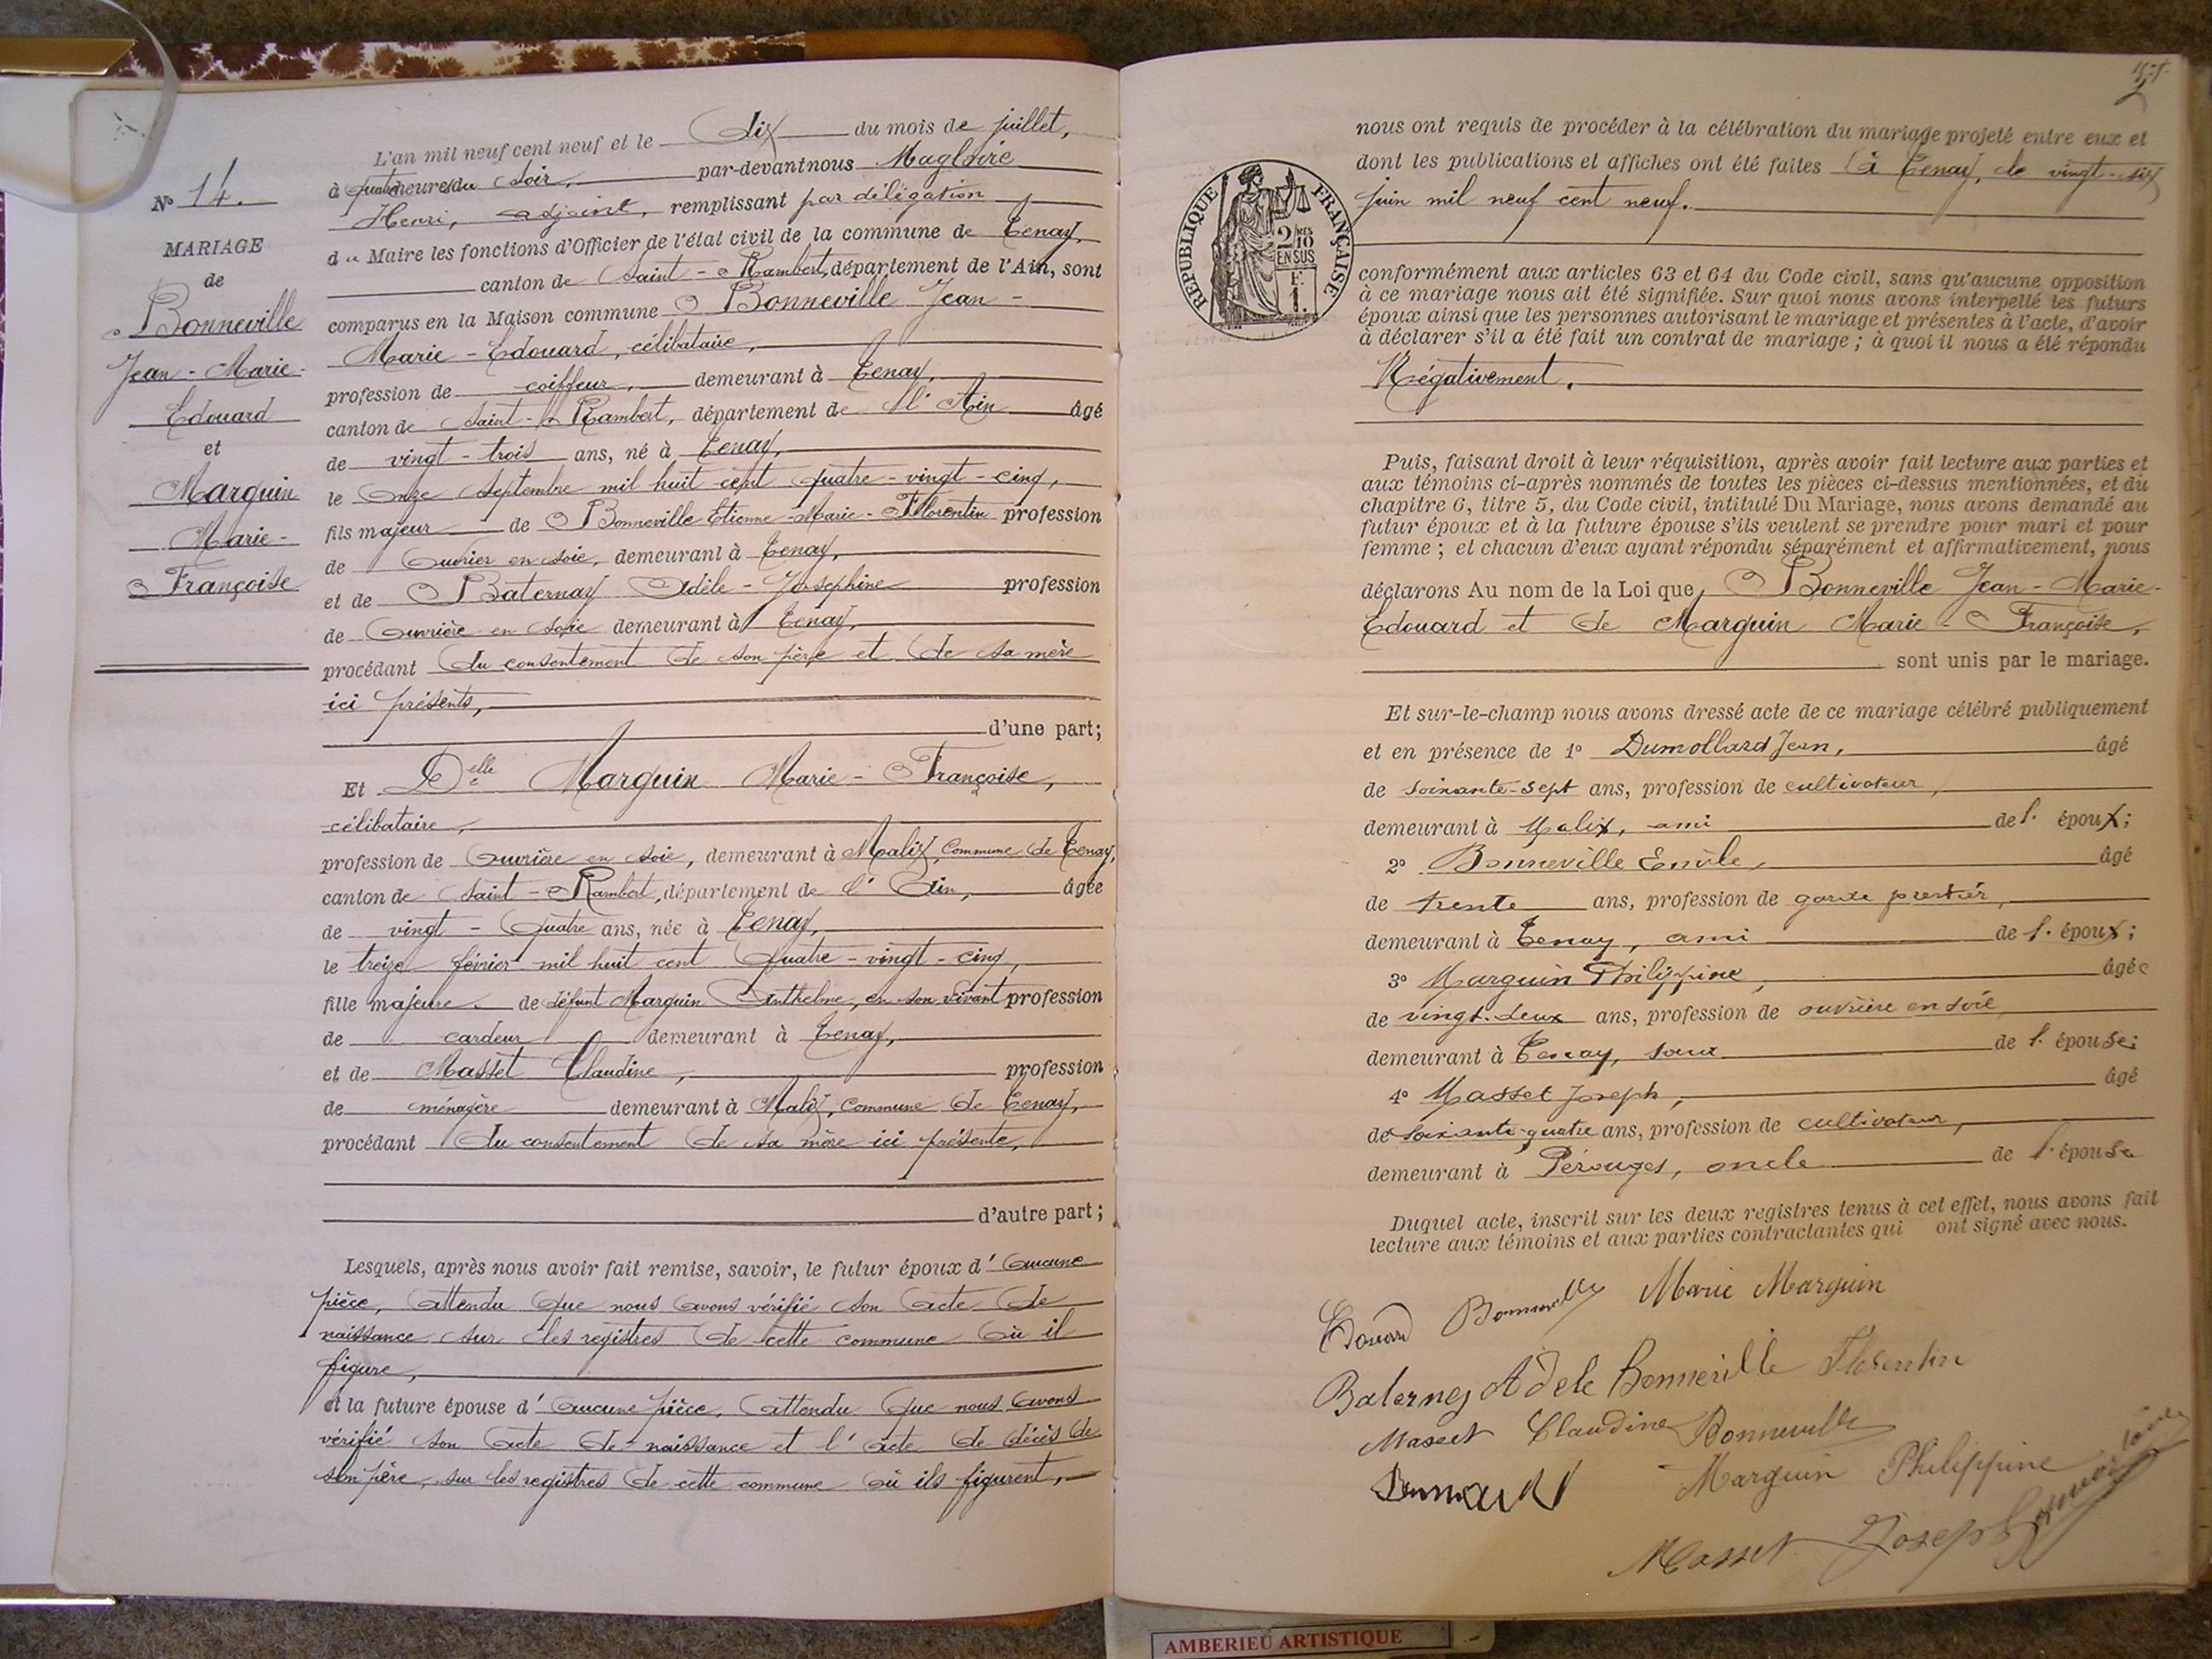 N° 14.
MARIAGE
de
Bonneville
Jean-Marie-
Edouard
et
Marguin
Marie-
Françoise
L'an mil neuf cent neuf et le dix du mois de juillet,
à quatre heures du soir, par-devant nous Magloire
Henri, adjoint, remplissant par délégation
du Maire les fonctions d'Officier de l'état civil de la commune de Tenay,
canton de Saint-Rambert, département de l'Ain, sont
comparus en la Maison commune Bonneville Jean-
Marie-Edouard, célibataire,
profession de coiffeur, demeurant à Tenay,
canton de Saint-Rambert, département de l'Ain âgé
de vingt-trois ans, né à Tenay,
le onze septembre mil huit cent quatre-vingt-cinq,
fils majeur de Bonneville Etienne-Marie-Florentin profession
de Ouvrier en soie, demeurant à Tenay,
et de Baternay Adèle-Josephine profession
de Ouvrière en soie demeurant à Tenay,
procédant du consentement de son père et de sa mère
ici présents,
d'une part;
Et Delle Marguin Marie-Françoise,
célibataire,
profession de Ouvrière en soie, demeurant à Malix, commune de Tenay,
canton de Saint-Rambert, département de l'Ain, âgée
de vingt-quatre ans, née à Tenay,
le treize février mil huit cent quatre-vingt-cinq,
fille majeure de défunt Marguin Anthelme, en son vivant profession
de cardeur demeurant à Tenay,
et de Masset Claudine, profession
de ménagère demeurant à Malix, commune de Tenay,
procédant du consentement de sa mère ici présente,
d'autre part;
Lesquels, après nous avoir fait remise, savoir, le futur époux d'aucune
pièce, attendu que nous avons vérifié son acte de
naissance sur les registres de cette commune où il
figure,
et la future épouse d'aucune pièce, attendu que nous avons
vérifié son acte de naissance et l'acte de décès de
son père, sur les registres de cette commune où ils figurent,
RÉPUBLIQUE FRANÇAISE
2 MES
10
EN SUS
F.
1.
nous ont requis de procéder à la célébration du mariage projeté entre eux et
dont les publications et affiches ont été faites à Tenay, le vingt-six
juin mil neuf cent neuf.
conformément aux articles 63 et 64 du Code civil, sans qu'aucune opposition
à ce mariage nous ait été signifiée. Sur quoi nous avons interpellé les futurs
époux ainsi que les personnes autorisant le mariage et présentes à l'acte, d'avoir
à déclarer s'il a été fait un contrat de mariage; à quoi il nous a été répondu
Négativement.
Puis, faisant droit à leur réquisition, après avoir fait lecture aux parties et
aux témoins ci-après nommés de toutes les pièces ci-dessus mentionnées, et du
chapitre 6, titre 5, du Code civil, intitulé Du Mariage, nous avons demandé au
futur époux et à la future épouse s'ils veulent se prendre pour mari et pour
femme; et chacun d'eux ayant répondu séparément et affirmativement, nous
déclarons Au nom de la Loi que Bonneville Jean-Marie-
Edouard et de Marguin Marie-Françoise,
sont unis par le mariage.
Et sur-le-champ nous avons dressé acte de ce mariage célébré publiquement
et en présence de 1° Dumollard Jean, âgé
de soixante-sept ans, profession de cultivateur,
demeurant à Malix, ami de l'époux;
2° Bonneville Emile, âgé
de trente ans, profession de garde
demeurant à Tenay, ami de l'époux;
3° Marguin Philippine, âgée
de vingt-deux ans, profession de ouvrière en soie
demeurant à Tenay, sœur de l'épouse;
4° Masset Joseph, âgé
de soixante-quatre ans, profession de cultivateur,
demeurant à Pérouges, oncle de l'épouse
Duquel acte, inscrit sur les deux registres tenus à cet effet, nous avons fait
lecture aux témoins et aux parties contractantes qui ont signé avec nous.
Edouard Bonneville Marie Marguin
Baternay Adele Bonneville Florentin
Masset Claudine Bonneville
Marguin Philippine
Masset Joseph
AMBERIEU ARTISTIQUE